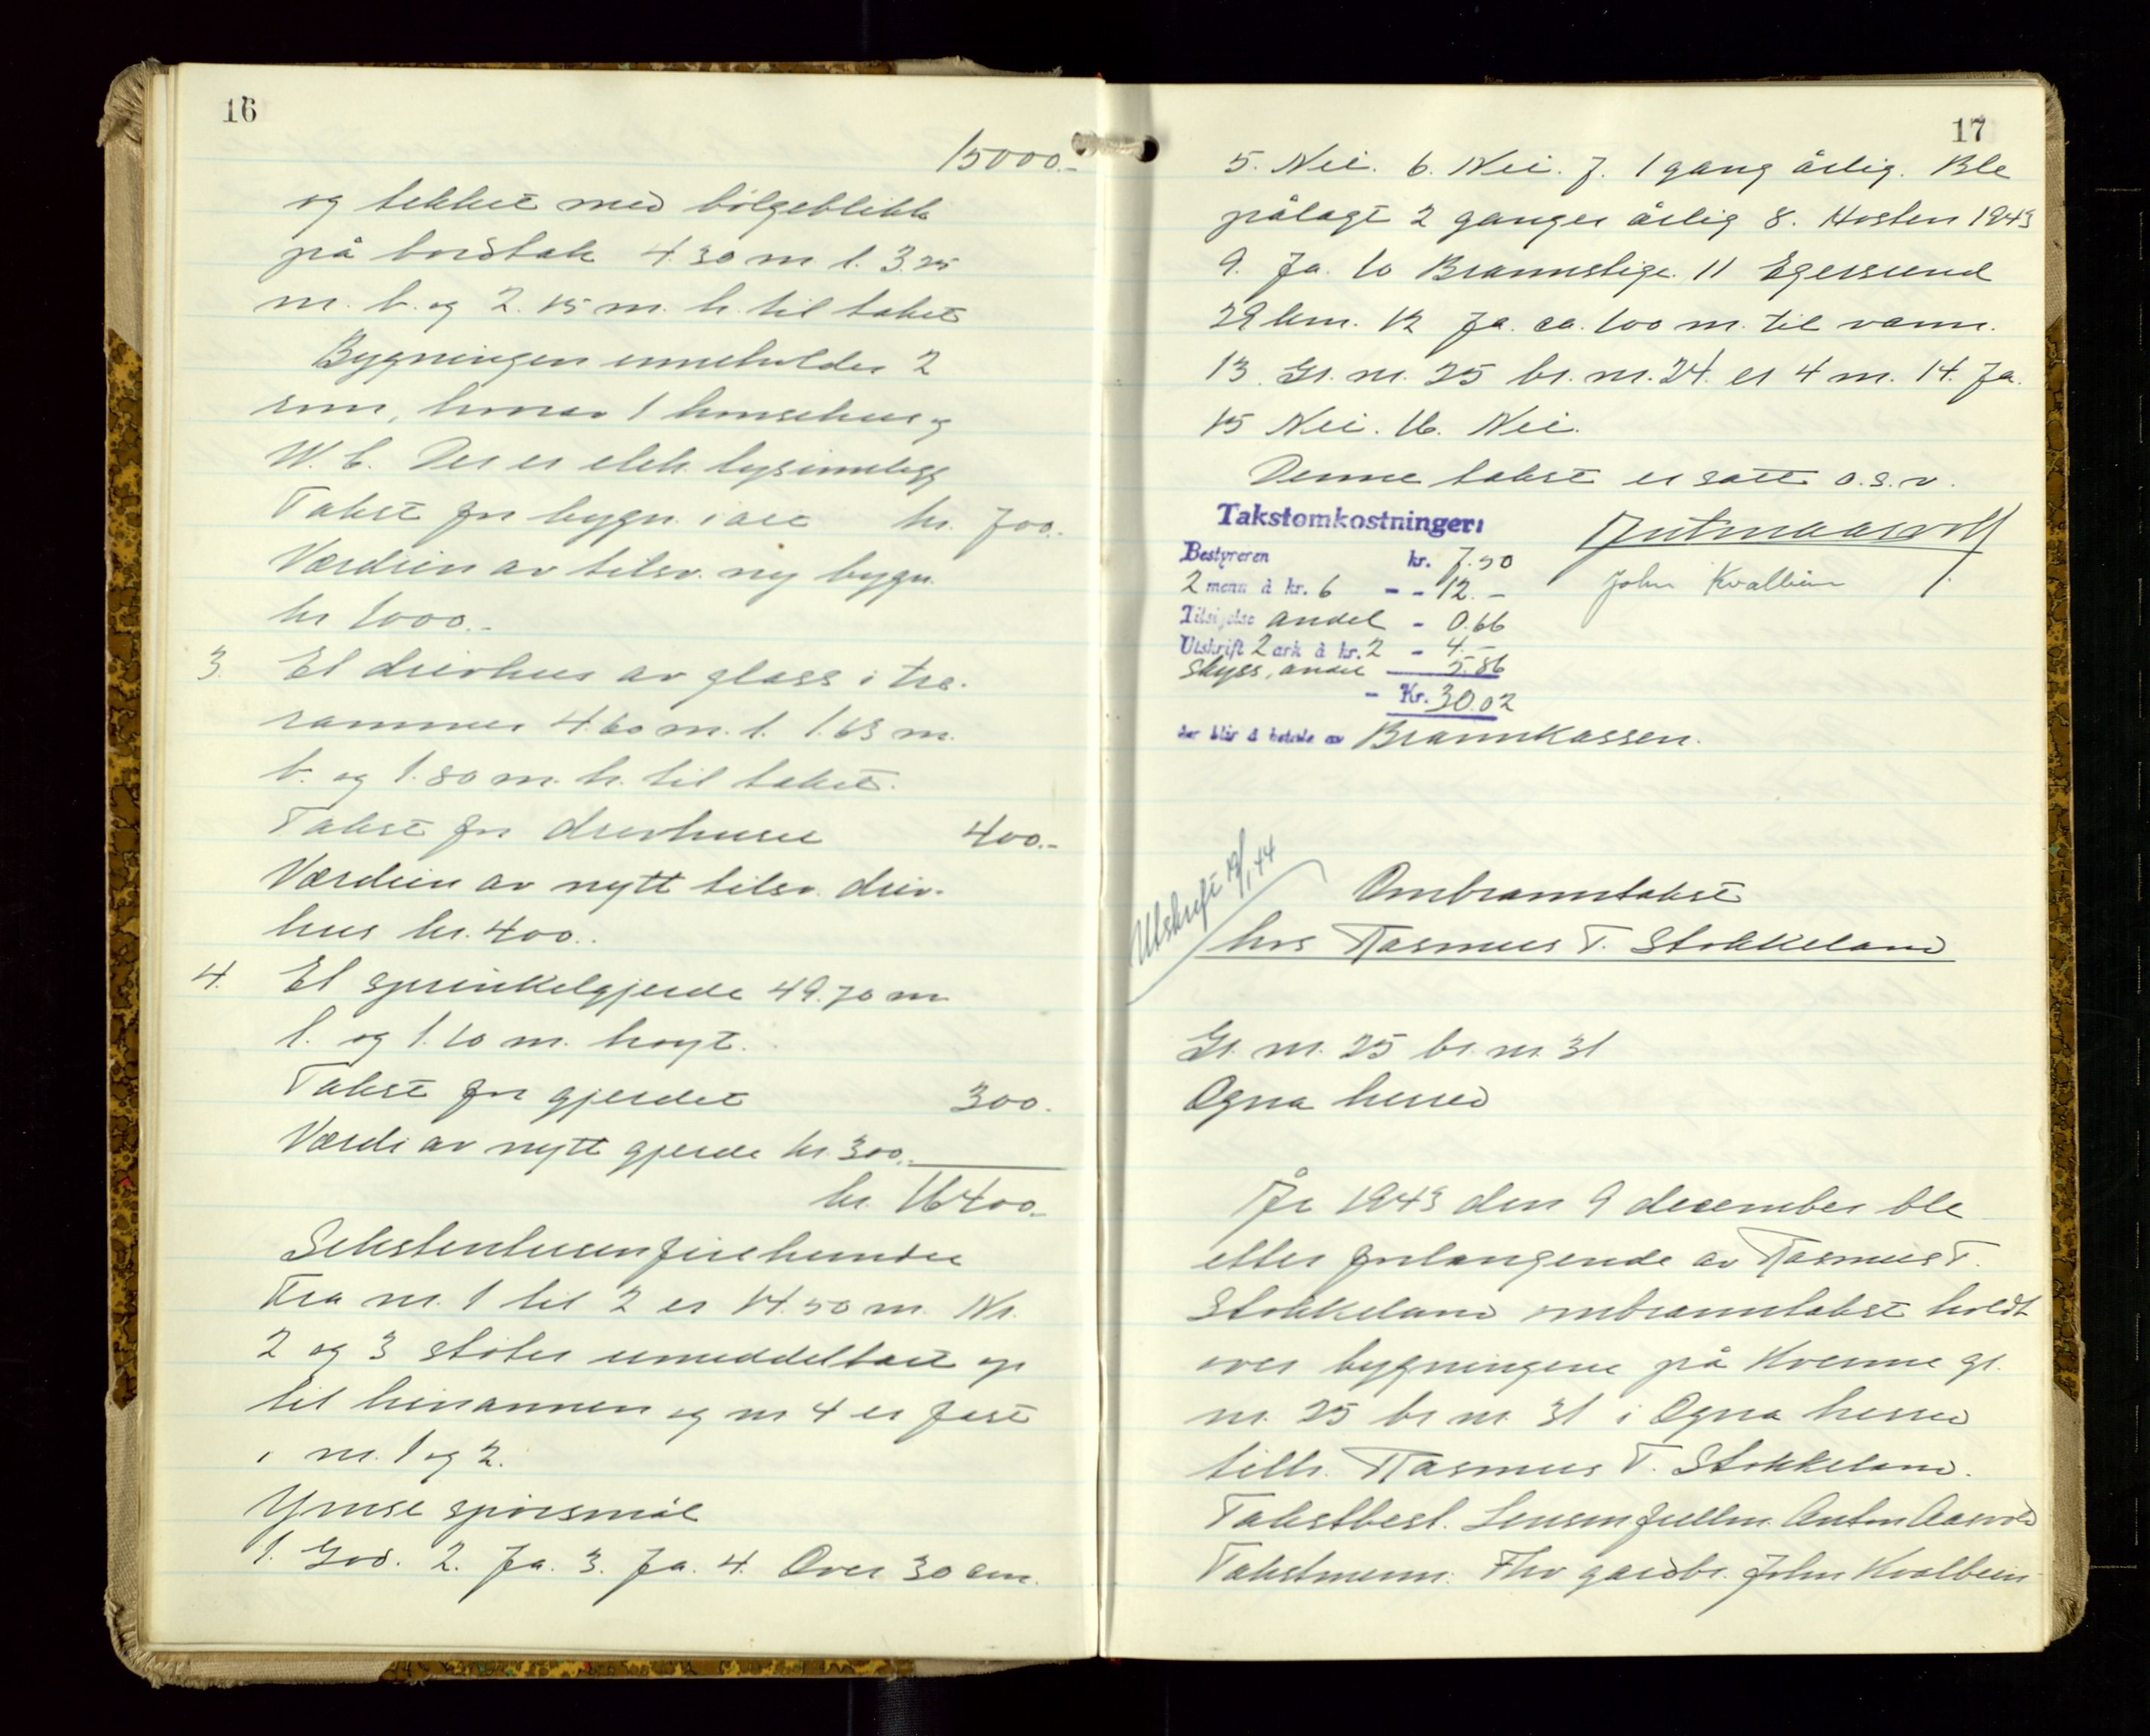 16
15000.-
og tekket med bølgeblikk
på bordtak 4.30 m l. 3.25
m. b. og 2.15 m. h. til taket
Bygningen inneholder 2
rom, hvorav 1 hønsehus og
W. C. Der er elek. lysinnlegg
Takst for bygn. i alt kr. 700.-
Værdien av tilsv. ny bygn.
kr 1000.-
3. Et drivhus av glass i tre-
rammer 4.60 m. l. 1.63 m.
b. og 1.80 m. h. til taket.
Takst for drivhuset 400.-
Værdien av nytt tilsv. driv-
hus kr. 400..
4. Et sprinkelgjerde 49.70 m
l. og 1.10 m. høyt.
Takst for gjerdet 300.
Værdi av nytt gjerde kr. 300.
kr. 16400.-
Sekstentusenfirehundre
Fra nr. 1 til 2 er 14.50 m. Nr.
2 og 3 støter umiddelbart op
til hinannen og nr 4 er fast
i nr. 1 og 2.
Ymse spørsmål
1. God. 2. Ja. 3. Ja. 4. Over 30 cm.
17
5. Nei. 6. Nei. 7. 1 gang årlig. Ble
pålagt 2 ganger årlig 8. Høsten 1943
9. Ja. 10 Brannstige. 11 Egersund
29 km. 12 Ja. ca. 100 m. til vann.
13. Gr. nr. 25 br. nr. 24. er 4 m. 14. Ja.
15 Nei. 16. Nei.
Denne takst er satt o.s.v.
Takstomkostninger:
Bestyreren kr. 7.50
2 menn à kr. 6 - - 12.-
Tilsigelse andel - 0.66
Utskrift 2 ark à kr. 2 - 4.-
Skyss, andel 5.86
- Kr. 30.02
der blir å betale av Brannkassen.
John Kvalbein
Utskrift 19/1 44
Ombranntakst
hos Rasmus T. Stokkeland
Gr. nr. 25 br. nr. 31
Ogna herred
År 1943 den 9 december ble
etter forlangende av Rasmus T.
Stokkeland ombranntakst holdt
over bygningene på Kvenne gr.
nr. 25 br nr. 31 i Ogna herred
tilh. Rasmus T. Stokkeland.
Takstbest. Lensm fullm. Anton Aasvold
Takstmenn: Fhv gardbr. John Kvalbein